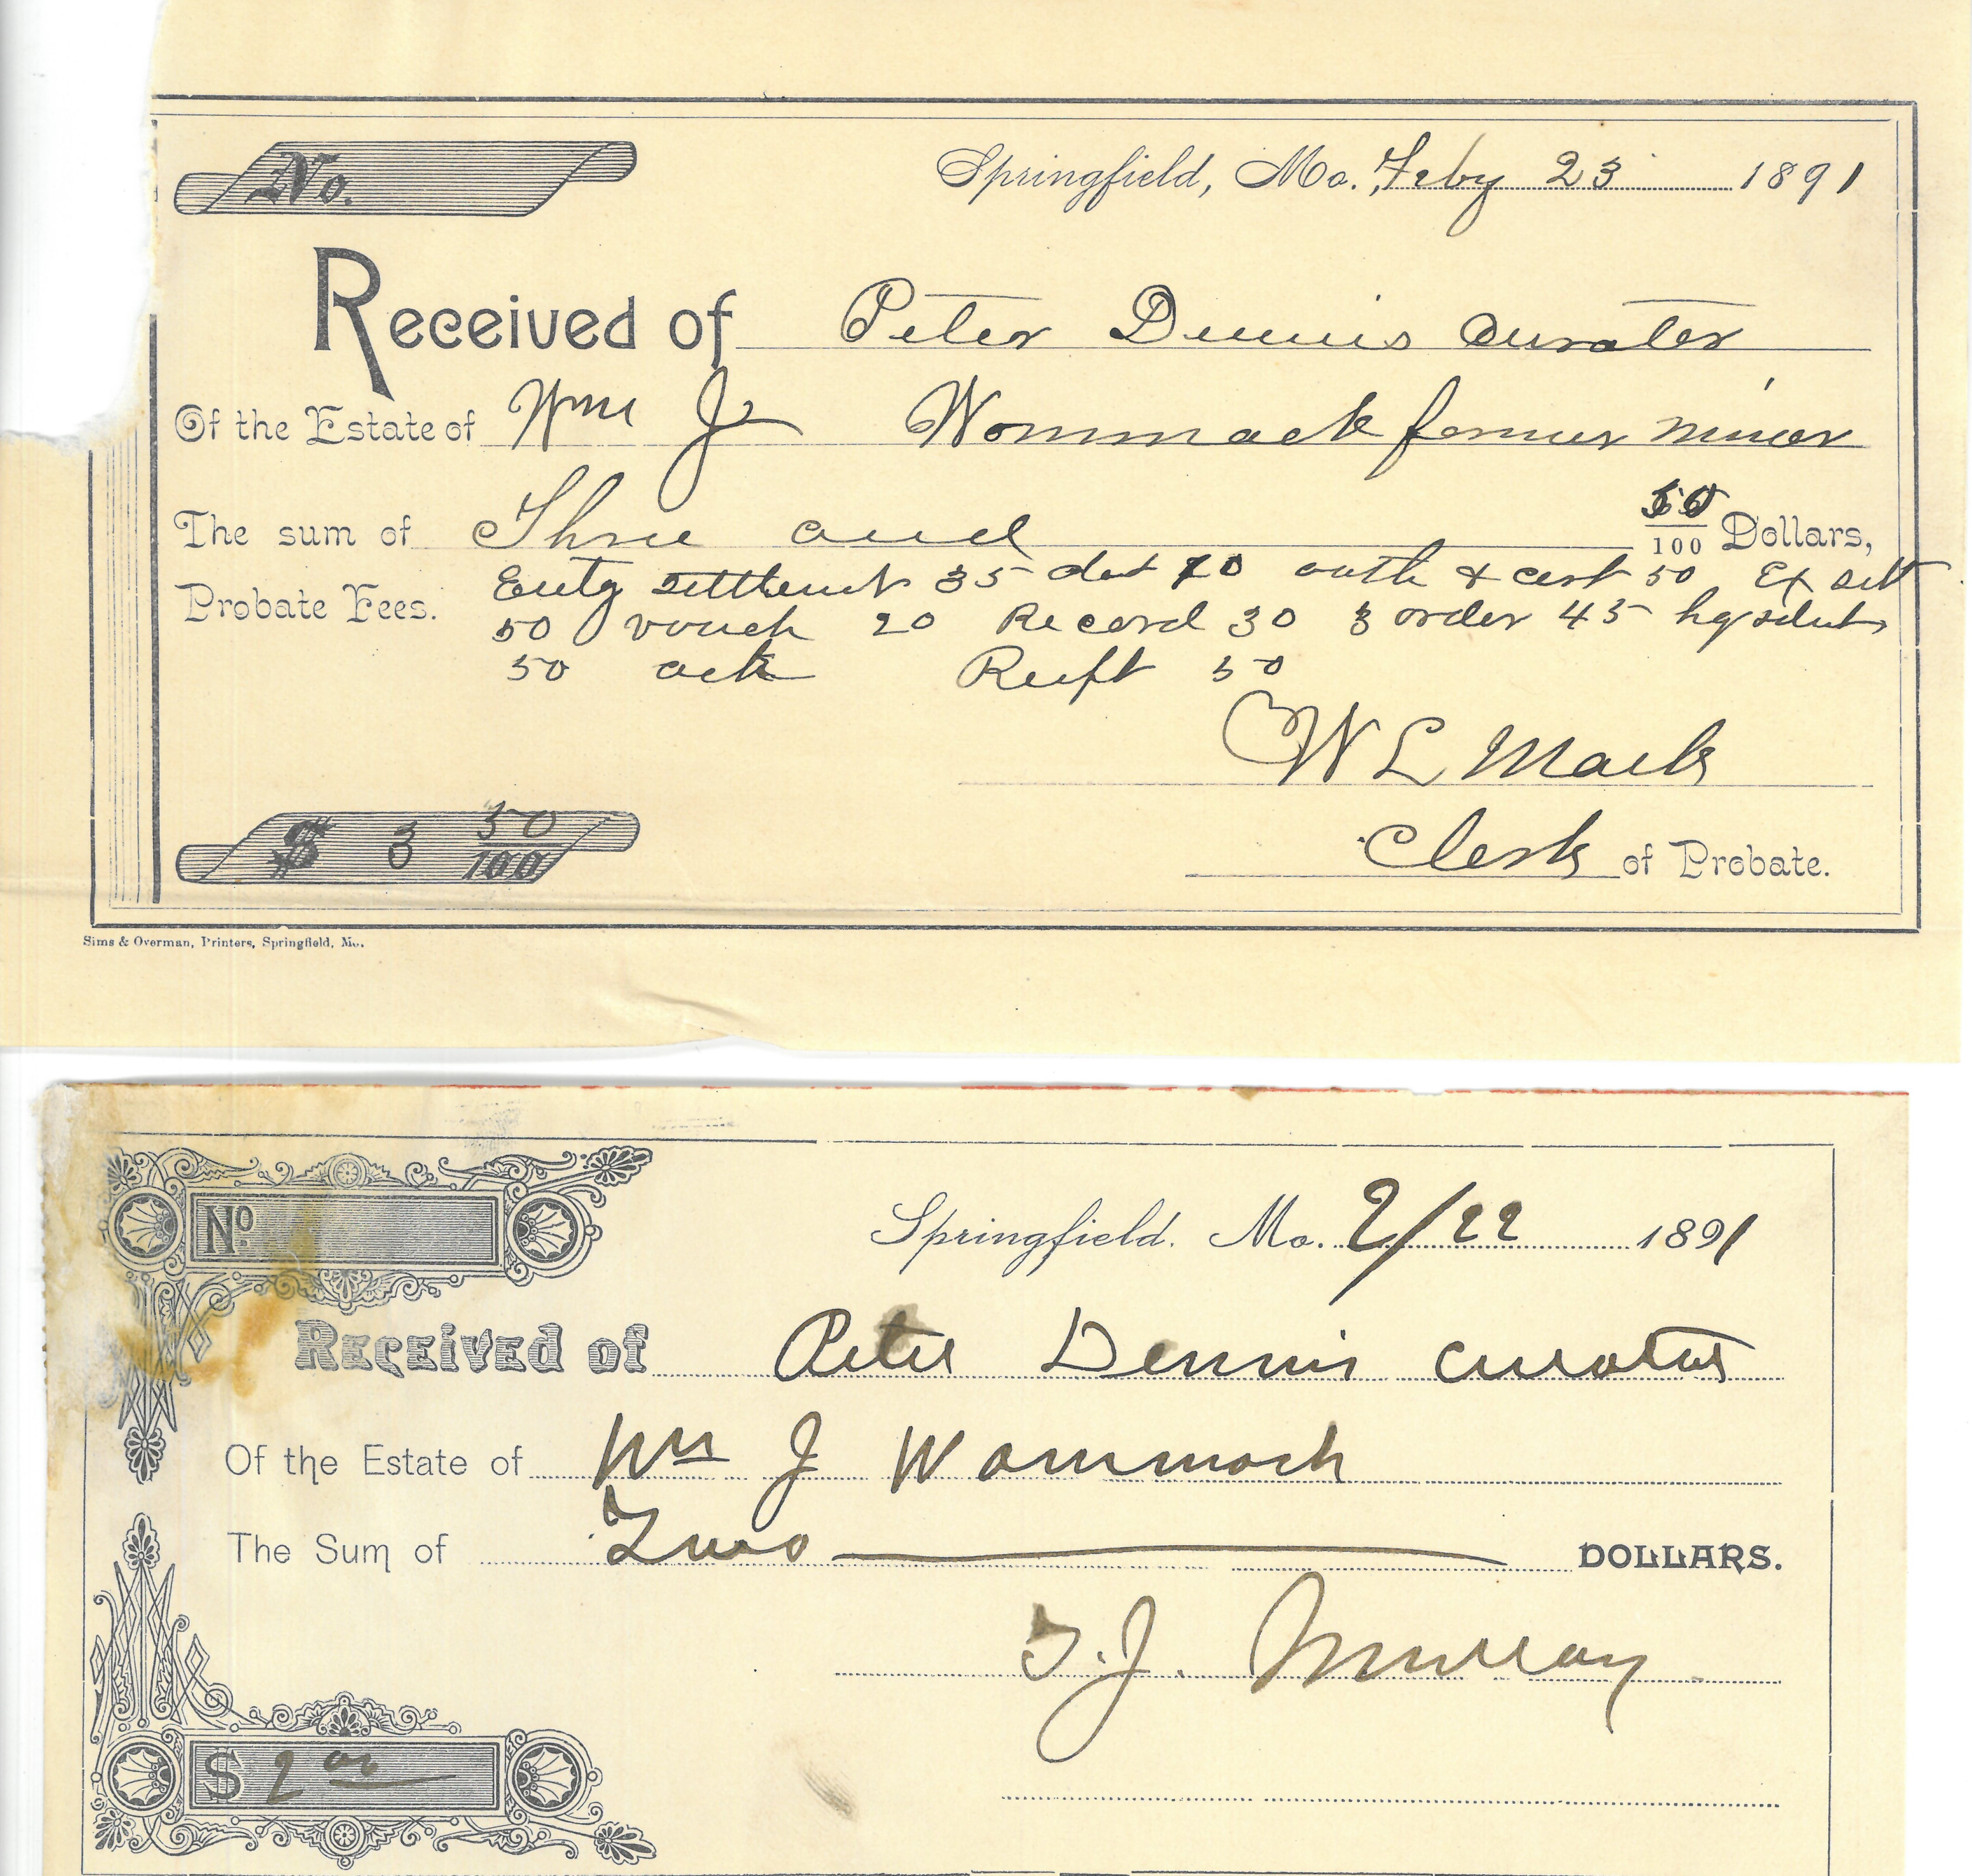 No.
Springfield, Mo. Feby 23 1891
Received of Peter Dennis Curator
Of the Estate of Wm J Wommack former minor
The sum of Three and 50/100 Dollars,
Probate Fees. Entg settlemt 35 dct 70 oath & cert 50 Ex sett
50 vouch 20 Record 30 3 order 45 hg
50 ack 50
W L Mack
$ 3 50/100
Clerk of Probate.
Sims & Overman, Printers, Springfield, Mo.
No
Springfield. Mo. 2/22 1891
RECEIVED of Peter Dennis Curator
Of the Estate of Wm J Wommack
The Sum of Two DOLLARS.
T. J. Murray
$ 2 00